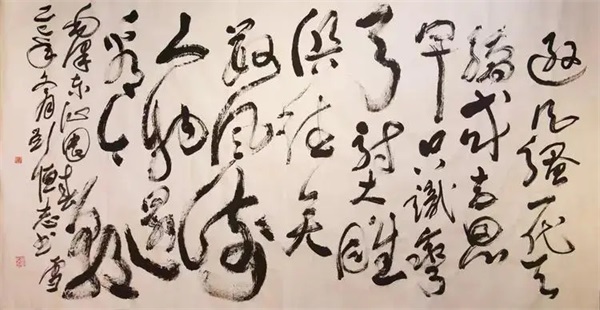 逊风骚一代天
骄成吉思
只识弯
弓射大雕
俱往矣
数风流
人物还
看今朝
毛泽东沁园春雪
年冬月彭恒志书